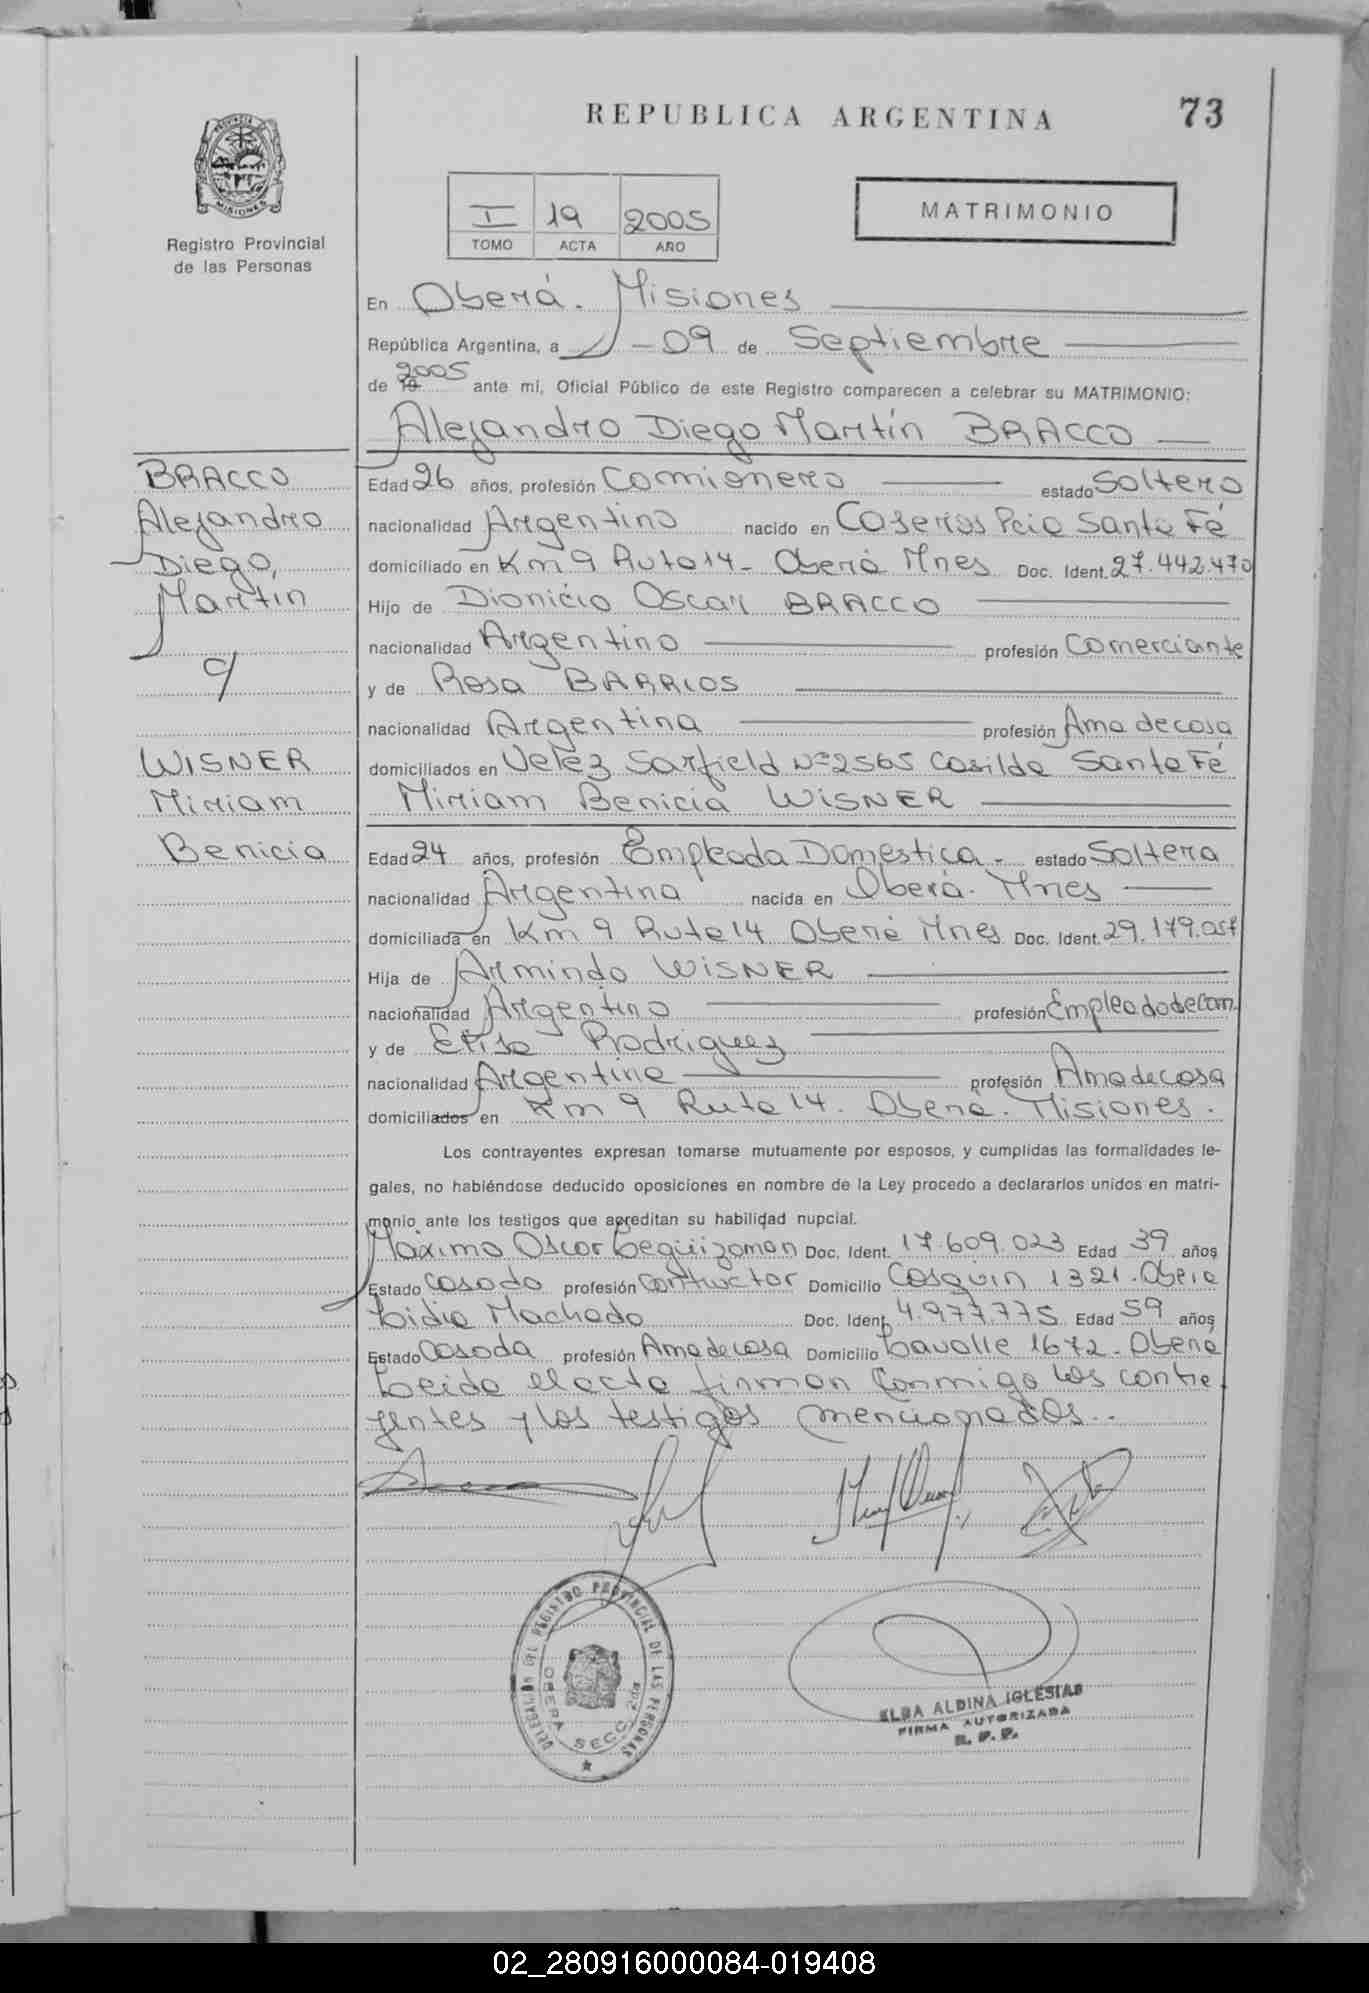 REPUBLICA ARGENTINA 73
PROVINCIA DE
MISIONES
Registro Provincial
de las Personas
I 19 2005
TOMO ACTA AÑO
MATRIMONIO
En Oberá. Misiones
República Argentina, a 09 de Septiembre
de 19 2005 ante mí, Oficial Público de este Registro comparecen a celebrar su MATRIMONIO:
Alejandro Diego Martín BRACCO
BRACCO
Alejandro
Diego,
Martin
c/
WISNER
Miriam
Benicia
Edad 26 años, profesión Camionero estado Soltero
nacionalidad Argentino nacido en Caseros Pcia Santa Fé
domiciliado en Km 9 Ruta 14 - Oberá Mnes Doc. Ident. 27.442.470
Hijo de Dionicio Oscar BRACCO
nacionalidad Argentino profesión Comerciante
y de Rosa BARRIOS
nacionalidad Argentina profesión Ama de casa
domiciliados en Velez Sarfield Nº 2565 Casilda Santa Fé
Miriam Benicia WISNER
Edad 24 años, profesión Empleada Domestica - estado Soltera
nacionalidad Argentina nacida en Oberá. Mnes
domiciliada en Km 9 Ruta 14 Oberá Mnes Doc. Ident. 29.179.057
Hija de Armindo WISNER
nacionalidad Argentino profesión Empleado de Com.
y de Elisa Rodriguez
nacionalidad Argentina profesión Ama de casa
domiciliados en Km 9 Ruta 14. Oberá. Misiones.
Los contrayentes expresan tomarse mutuamente por esposos, y cumplidas las formalidades le-
gales, no habiéndose deducido oposiciones en nombre de la Ley procedo a declararlos unidos en matri-
monio ante los testigos que acreditan su habilidad nupcial.
Máximo Oscar Leguizamon Doc. Ident. 17.609.023 Edad 39 años
Estado Casado profesión Contructor Domicilio Cosquin 1321. Oberá
Lidia Machado Doc. Ident. 4.977.775 Edad 59 años
Estado Casada profesión Ama de casa Domicilio Lavalle 1672 - Oberá
Leida el acta firman conmigo los contra
yentes y los testigos mencionados..
DELEGACION DEL REGISTRO PROVINCIAL DE LAS PERSONAS
OBERA SECC. 2da
ELBA ALDINA IGLESIAS
FIRMA AUTORIZADA
R. P. P.
02_280916000084-019408